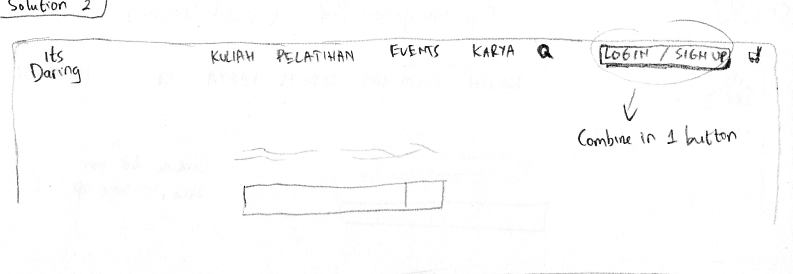 Solution 2
Its
Daring
KULIAH PELATIHAN EVENTS KARYA
LOGIN / SIGN UP
Combine in 1 button